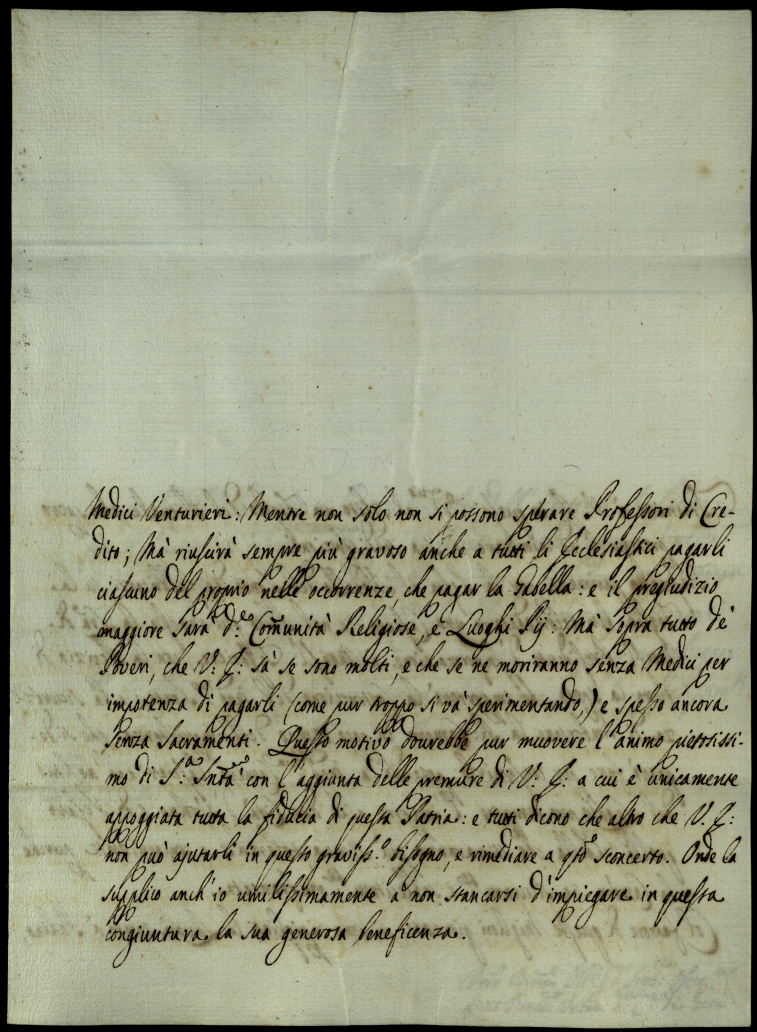 Medici Venturieri: Mentre non solo non si possono sperare Professori di Cre-
dito; Mà riuscirà sempre più gravoso anche a tutti li Ecclesiastici pagarli
ciascuno del proprio nelle occorrenze, che pagar la Gabella: e il pregiudizio
maggiore sarà d.e Comunità Religiose, e Luoghi Pij: Mà sopra tutto de'
Poveri, che V: E: sà se sono molti, e che se ne moriranno senza Medici per
impotenza di pagarli (come pur troppo si và sperimentando,) e spesso ancora
senza Sacramenti. Questo motivo dourebbe pur muovere l'animo pietosissi-
mo di S.a Sntà con l'aggiunta delle premure di V: E: a cui è unicamente
appoggiata tutta la fiducia di questa Patria: e tutti dicono che altro che V. E:
non può ajutarli in questo graviss.o bisogno, e rimediare a qto sconcerto. Onde la
supplico anch'io umilissimamente a non stancarsi d'impiegare in questa
congiuntura la sua generosa beneficenza.